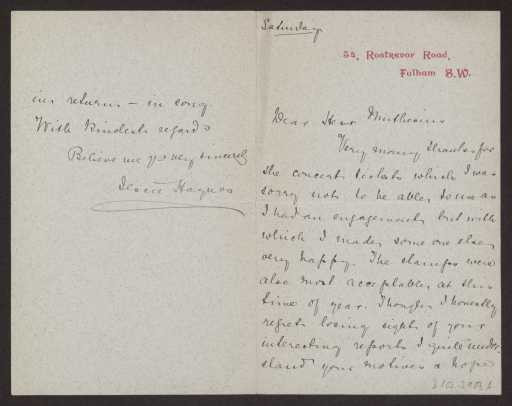 Saturday
53, Rostrevor Road,
Fulham S.W.
Dear Herr Muthesius
Very many thanks for
the concert tickets which I was
sorry not to be able to use as
I had an engagement but with
which I made some one else
very happy. The stamps were
also most acceptable at this
time of year. Though I honestly
regret losing sight of your
interesting reports I quite under-
stand your motives & hope
in return – in song.
With kindest regards
Believe me yrs very sincerely
Haynes